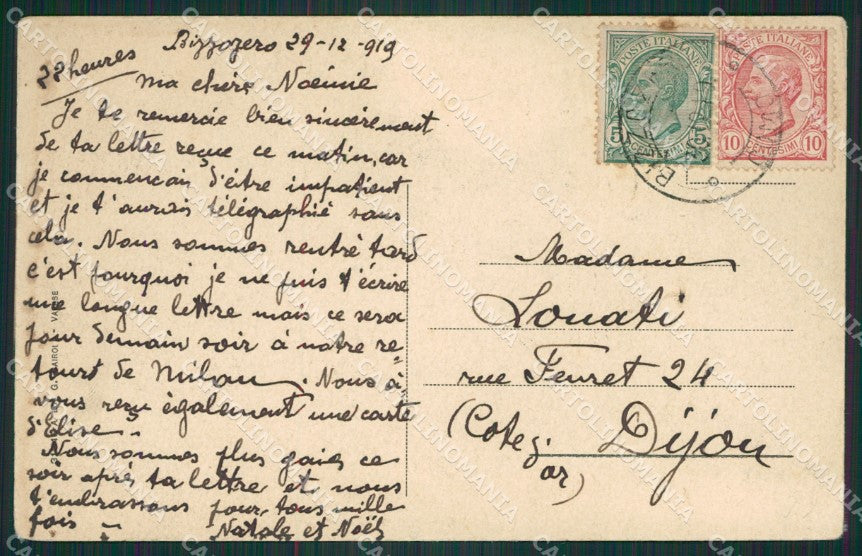 Bizzozero 29-12-919
22 heures
ma chère Noémie
Je te remercie bien sincèrement
de ta lettre reçue ce matin, car
je commencais d'être impatient
et je t'aurais télégraphié sans
cela. Nous sommes rentré tard
c'est pourquoi je ne puis t'écrire
une longue lettre mais ce sera
pour demain soir à notre re-
tourt de Milan. Nous a-
vons reçu également une carte
d'Elise.
Nous sommes plus gaies ce
soir après ta lettre et nous
t'embrassons pour tous mille
fois
Natale et Noël
POSTE ITALIANE
5 CENTESIMI 5
POSTE ITALIANE
10 CENTESIMI 10
Madame
Louati
rue Feuret 24
(Cote d'or)
Dijon
VARESE
CARTOLINOMANIA